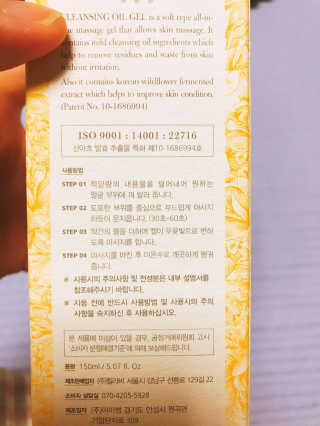 CLEANSING OIL GEL is a soft type all-in-
one massage gel that allows skin massage. It
contains mild cleansing oil ingredients which
help to remove residues and waste from skin
without irritation.
Also it contains korean wildflower fermented
extract which helps to improve skin condition.
(Patent No. 10-1686994)
ISO 9001 : 14001 : 22716
산야초 발효 추출물 특허 제10-1686994호
사용방법
STEP 01 적당량의 내용물을 덜어내어 원하는
얼굴 부위에 펴 발라 줍니다.
STEP 02 도포한 부위를 중심으로 부드럽게 마사지
하듯이 문지릅니다. (30초~60초)
STEP 03 약간의 물을 더하여 젤이 우윳빛으로 변하
도록 마사지를 합니다.
STEP 04 마사지를 마친 후 미온수로 깨끗하게 헹궈
줍니다.
※ 사용시의 주의사항 및 전성분은 내부 설명서를
참조해주시기 바랍니다.
※ 사용 전에 반드시 사용방법 및 사용시의 주의
사항을 숙지하신 후 사용하십시오.
본 제품에 이상이 있을 경우, 공정거래위원회 고시
'소비자 분쟁해결기준'에 의해 보상해드립니다.
용량 150ml / 5.07 fl. Oz
제조판매업자 서울시 강남구 선릉로 129길 22
소비자 상담실 070-4205-5928
제조업자 경기도 안성시 원곡면